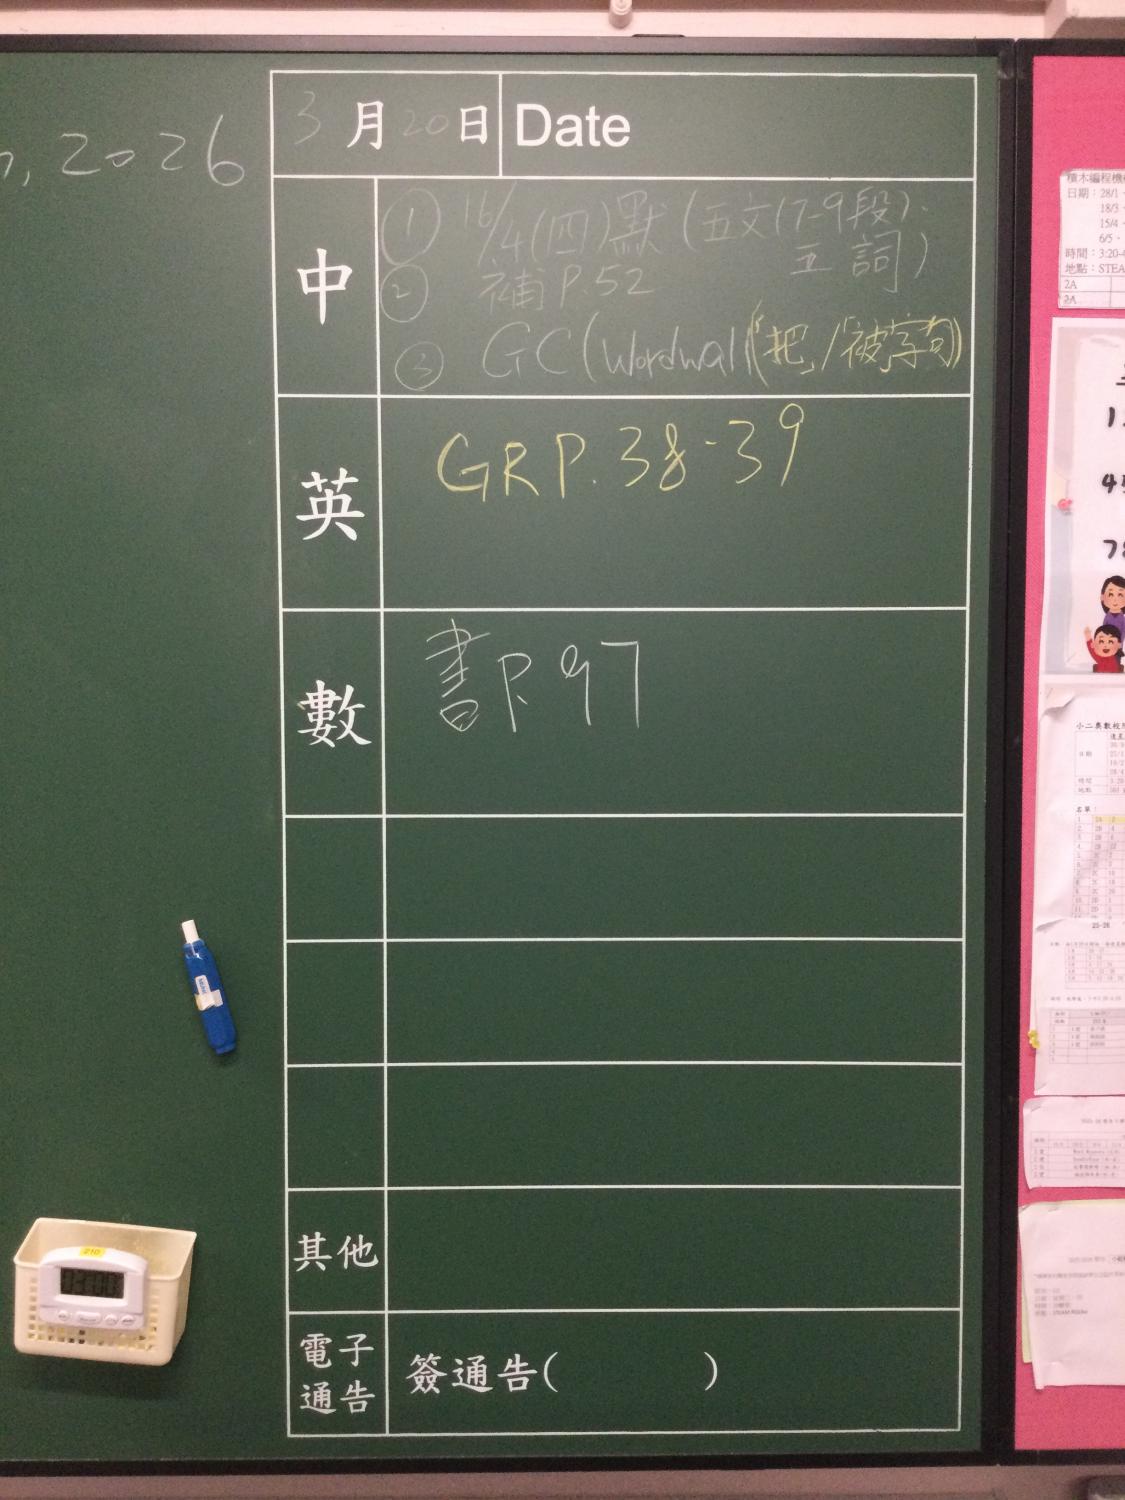 , 2026
3月20日 Date
中
① 16/4(四)默(五文(7-9段)、
五詞)
② 補P.52
③ GC(Wordwall(「把」/「被」字句)
英
GR P.38-39
數
書P.97
其他
電子
通告
簽通告( )
210
積木編程機
日期：28/1
18/3
15/4
6/5
時間：3:20-4
地點：STEA
2A
2A
小二奧數校
日期
時間
地點
名單：
25-26